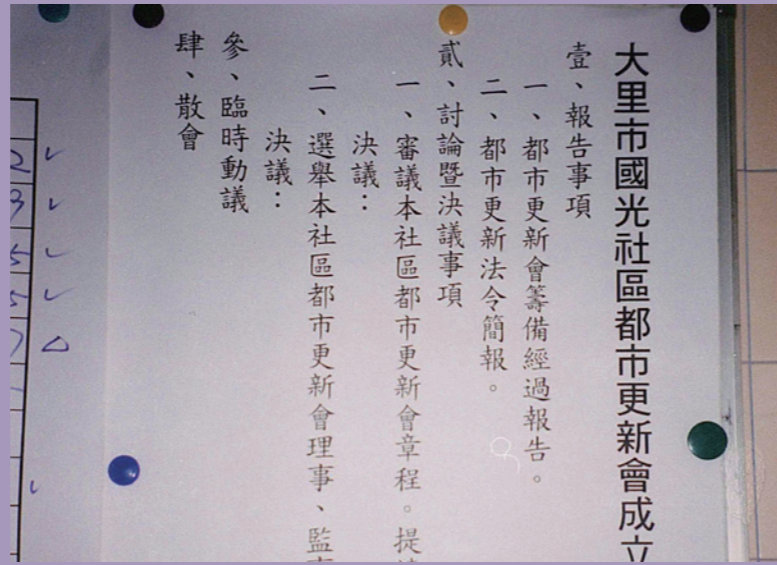 大里市國光社區都市更新會成立
壹、報告事項
一、都市更新會籌備經過報告。
二、都市更新法令簡報。
貳、討論暨決議事項
一、審議本社區都市更新會章程。提
決議：
二、選舉本社區都市更新會理事、監
決議：
參、臨時動議
肆、散會